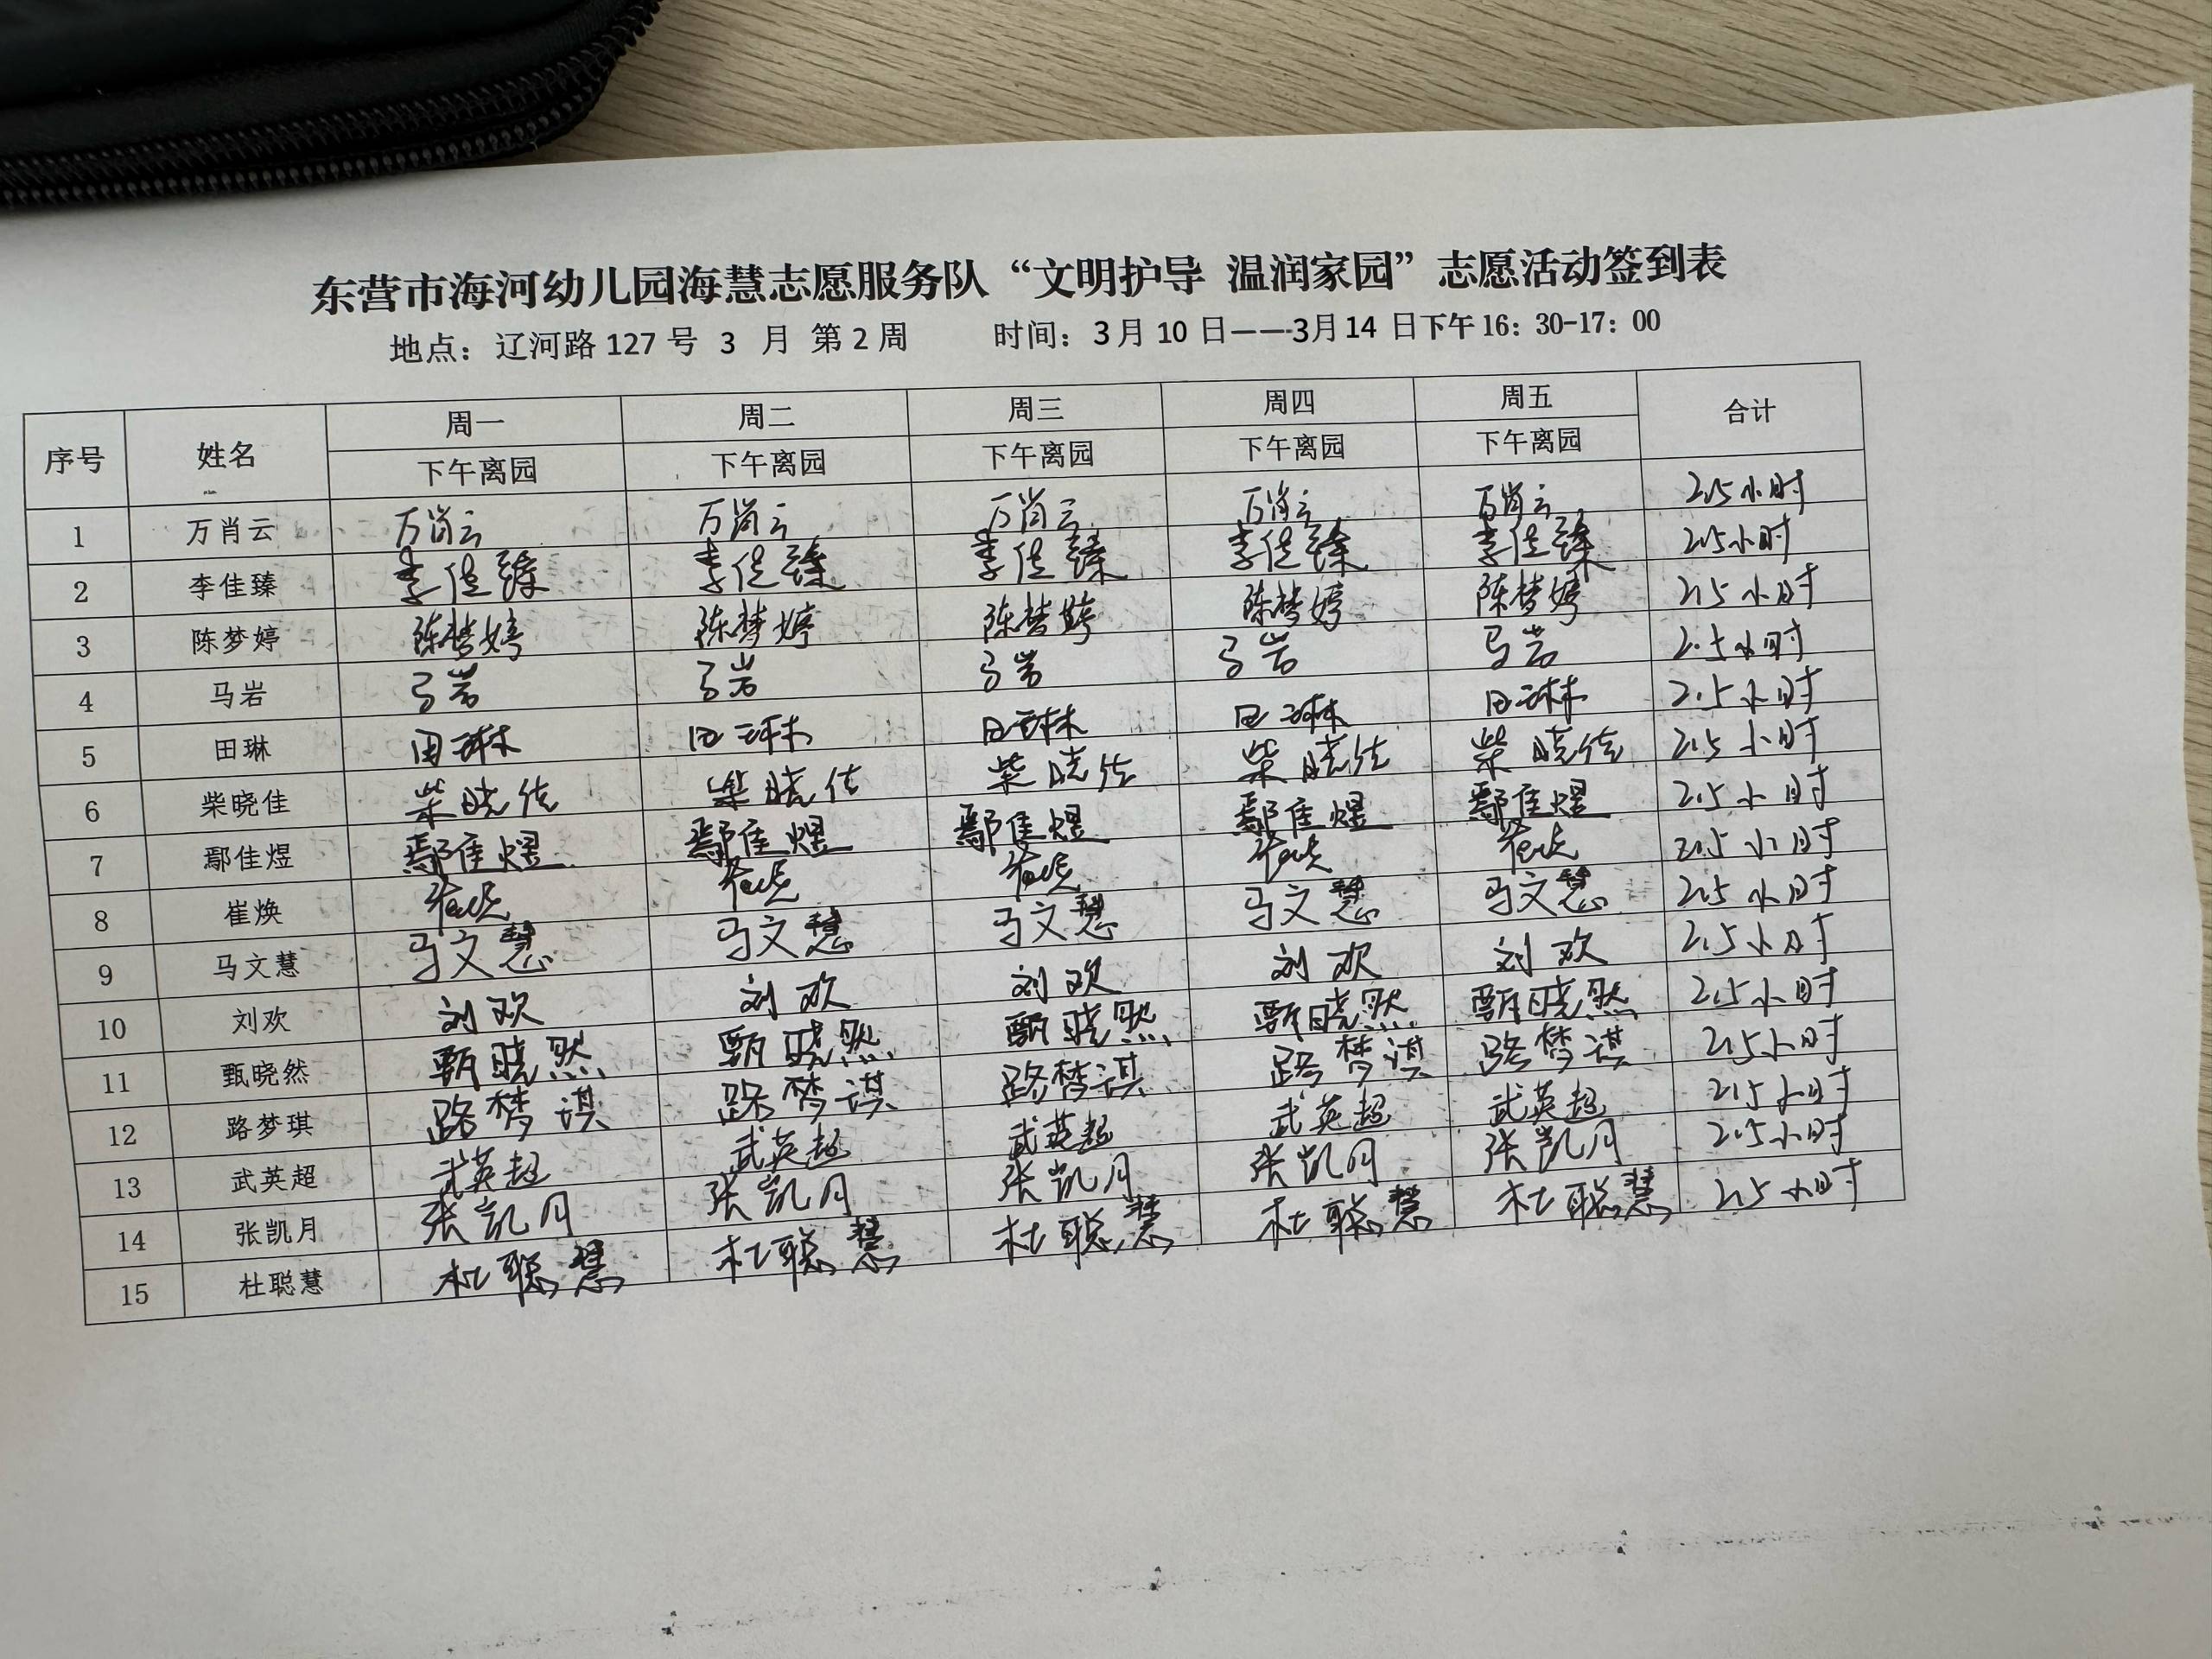 东营市海河幼儿园海慧志愿服务队“文明护导 温润家园”志愿活动签到表
地点：辽河路127号 3 月 第2周 时间：3月10日——3月14日下午16：30-17：00
序号 姓名 周一 周二 周三 周四 周五 合计
下午离园 下午离园 下午离园 下午离园 下午离园
1 万肖云 万肖云 万肖云 万肖云 万肖云 万肖云 2.5小时
2 李佳臻 李佳臻 李佳臻 李佳臻 李佳臻 李佳臻 2.5小时
3 陈梦婷 陈梦婷 陈梦婷 陈梦婷 陈梦婷 陈梦婷 2.5小时
4 马岩 马岩 马岩 马岩 马岩 马岩 2.5小时
5 田琳 田琳 田琳 田琳 田琳 田琳 2.5小时
6 柴晓佳 柴晓佳 柴晓佳 柴晓佳 柴晓佳 柴晓佳 2.5小时
7 鄢佳煜 鄢佳煜 鄢佳煜 鄢佳煜 鄢佳煜 鄢佳煜 2.5小时
8 崔焕 崔焕 崔焕 崔焕 崔焕 崔焕 2.5小时
9 马文慧 马文慧 马文慧 马文慧 马文慧 马文慧 2.5小时
10 刘欢 刘欢 刘欢 刘欢 刘欢 刘欢 2.5小时
11 甄晓然 甄晓然 甄晓然 甄晓然 甄晓然 甄晓然 2.5小时
12 路梦琪 路梦琪 路梦琪 路梦琪 路梦琪 路梦琪 2.5小时
13 武英超 武英超 武英超 武英超 武英超 武英超 2.5小时
14 张凯月 张凯月 张凯月 张凯月 张凯月 张凯月 2.5小时
15 杜聪慧 杜聪慧 杜聪慧 杜聪慧 杜聪慧 杜聪慧 2.5小时